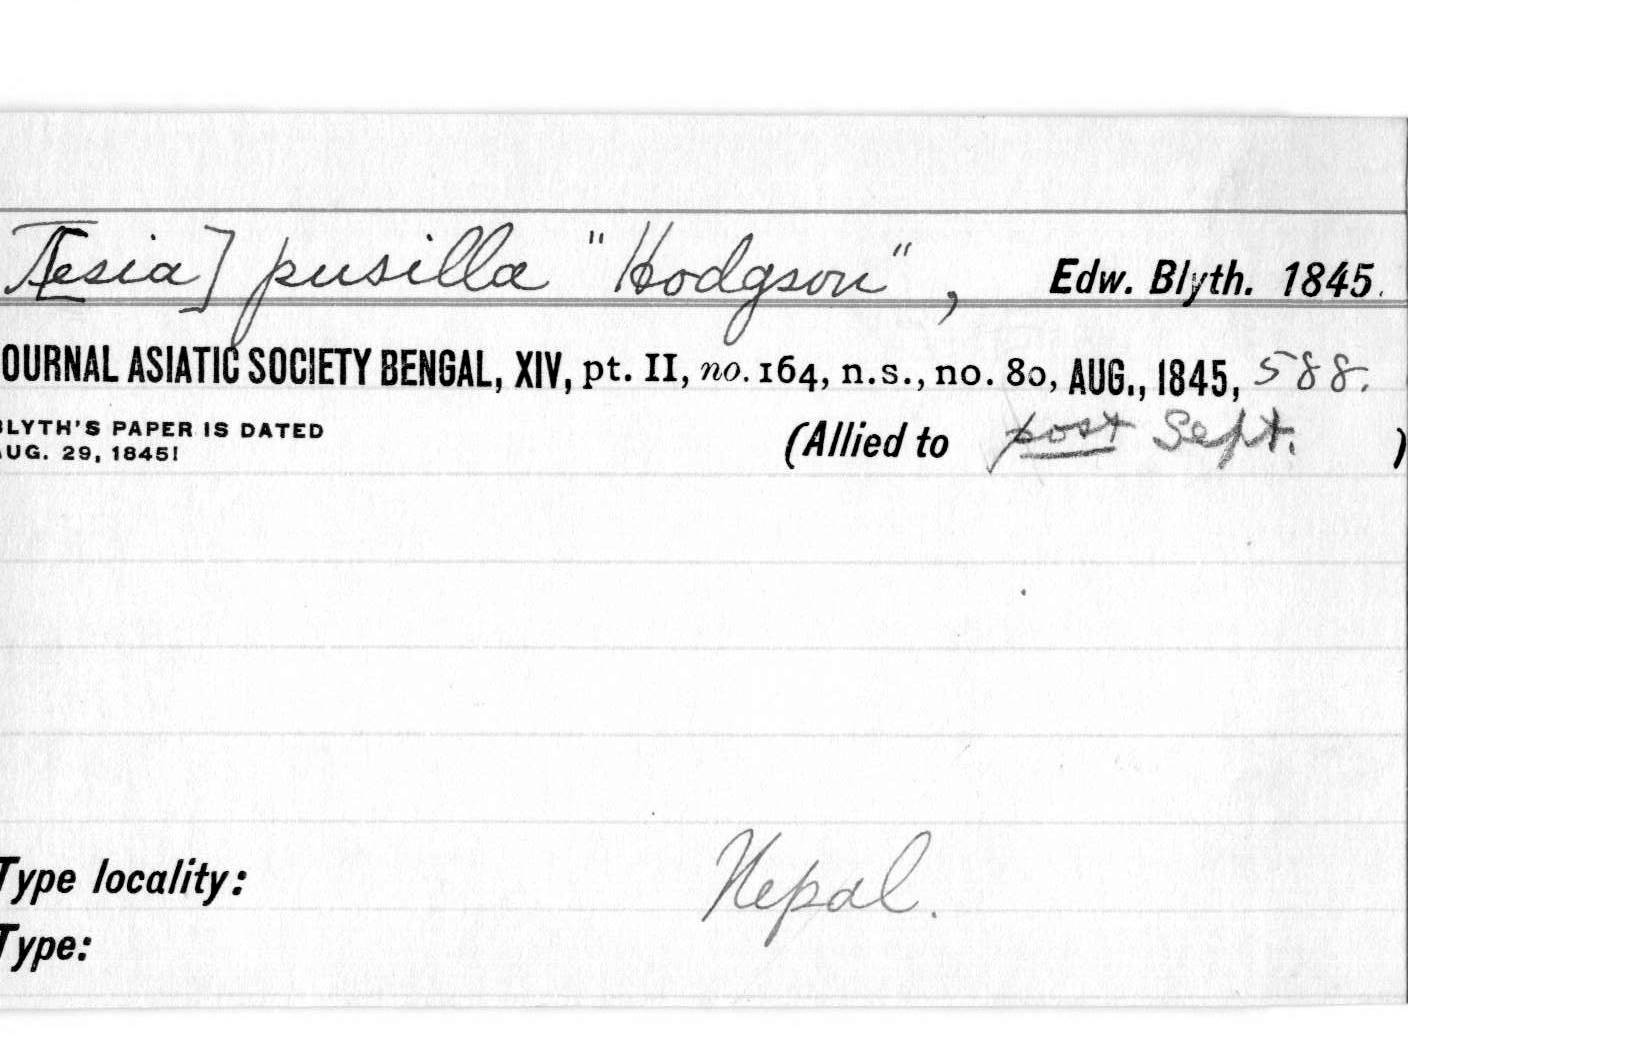 T[esia] pusilla "Hodgson", Edw. Blyth. 1845.
OURNAL ASIATIC SOCIETY BENGAL, XIV, pt. II, no. 164, n.s., no. 80, AUG., 1845, 588.
LYTH'S PAPER IS DATED
UG. 29, 1845!
(Allied to post Sept. )
Type locality: Nepal.
Type: